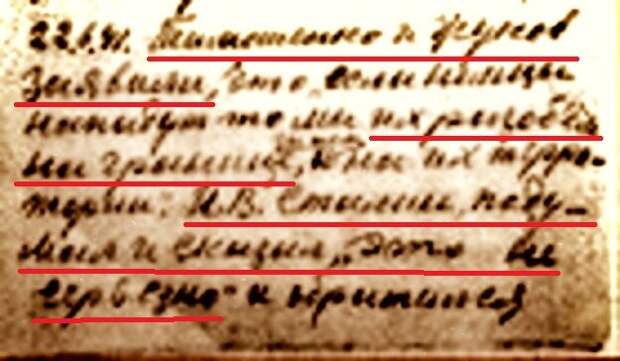 22.6.41. Тимошенко и Жуков
заявили, что если немцы
нападут то мы их разобьём
на границе, на их терри-
тории. И.В. Сталин поду-
мал и сказал „это не
серьезно" и